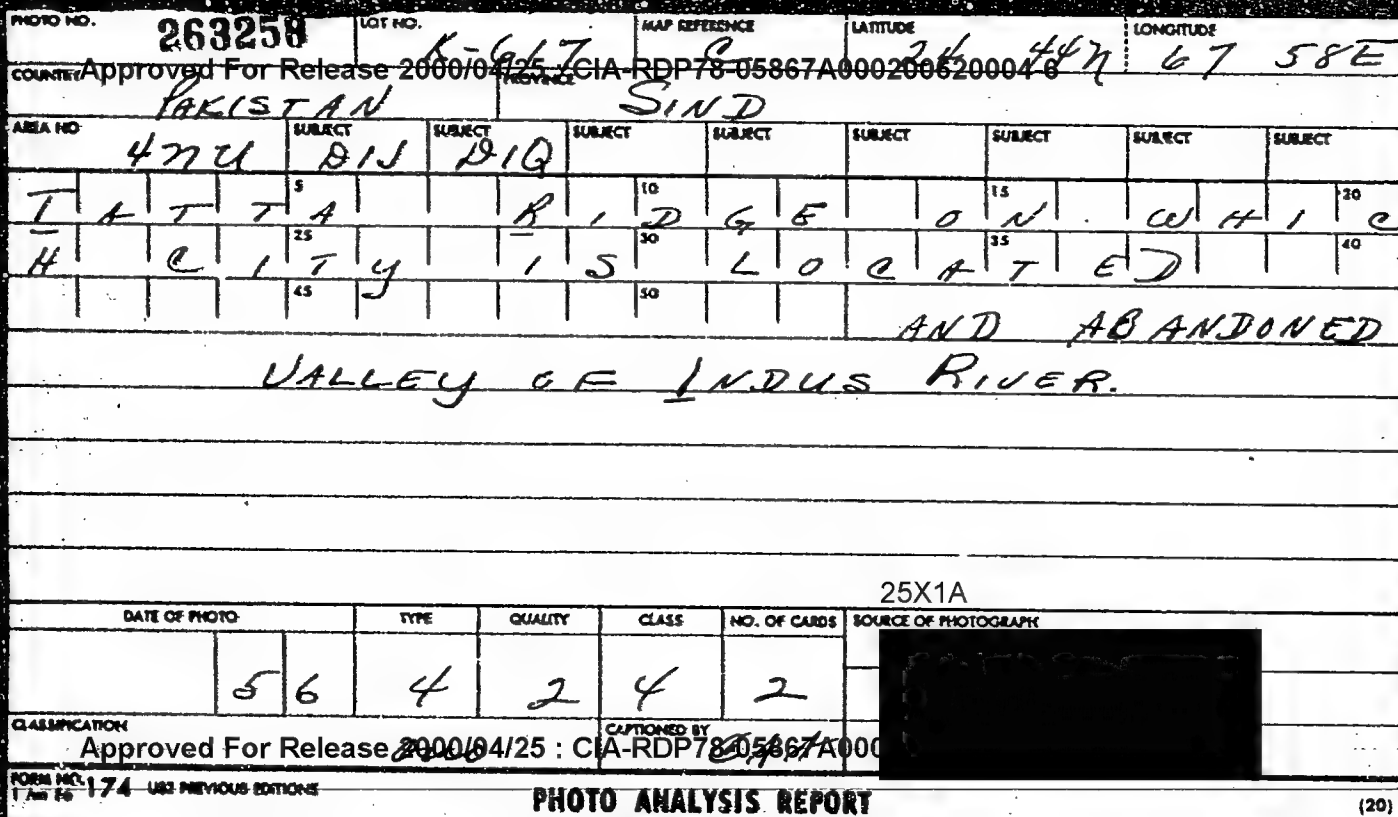 PHOTO NO. 263258 LOT NO. K-617 MAP REFERENCE C LATITUDE 24 44N LONGITUDE 67 58E
COUNTRY Approved For Release 2000/04/25 : CIA-RDP78-05867A000200620004-6
PAKISTAN PROVINCE SIND
AREA NO SUBJECT SUBJECT SUBJECT SUBJECT SUBJECT SUBJECT SUBJECT SUBJECT
4NU DIJ DIQ
5 10 15 20
TATTA RIDGE ON WHIC
25 30 35 40
H CITY IS LOCATED
45 50
AND ABANDONED
VALLEY OF INDUS RIVER.
25X1A
DATE OF PHOTO TYPE QUALITY CLASS NO. OF CARDS SOURCE OF PHOTOGRAPH
56 4 2 4 2
CLASSIFICATION CAPTIONED BY
Approved For Release 2000/04/25 : CIA-RDP78-05867A000
FORM NO. 174 USE PREVIOUS EDITIONS PHOTO ANALYSIS REPORT (20)